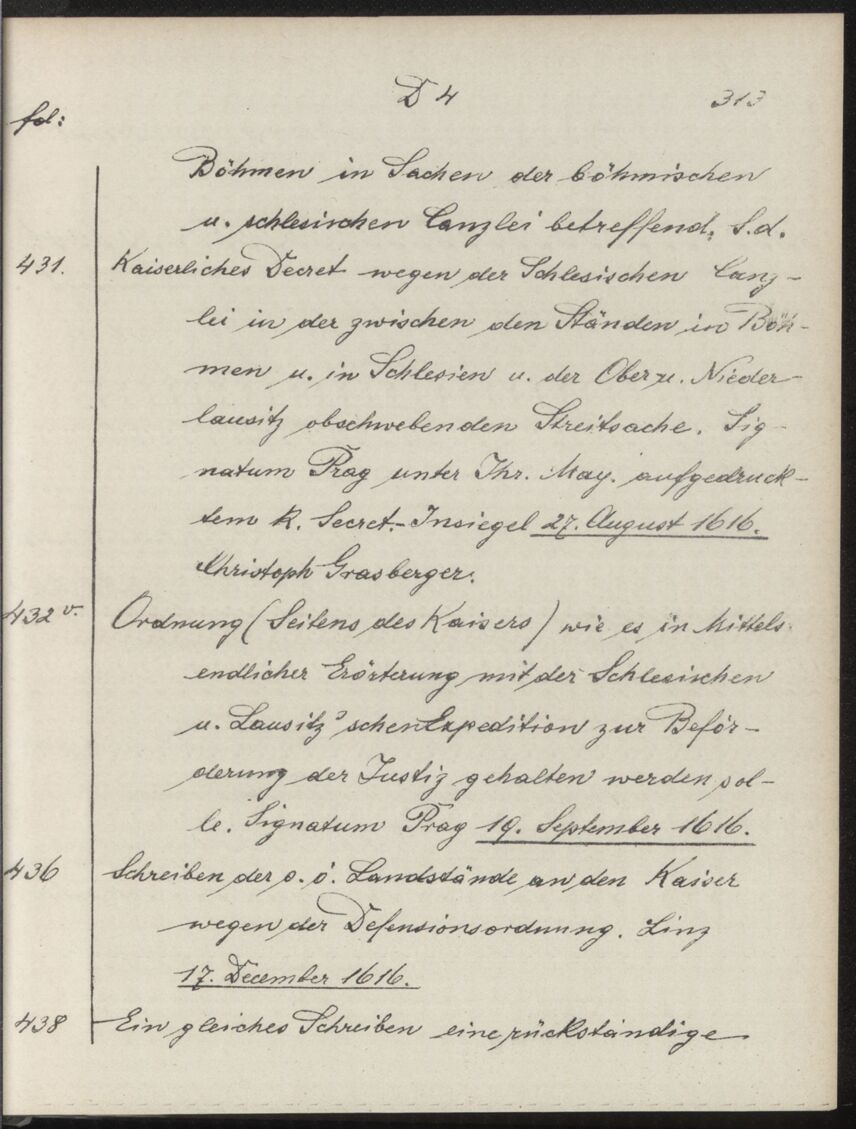 D 4 313
fol:
Böhmen in Sachen der böhmischen
u. schlesischen Canzlei betreffend. S.d.
431. Kaiserliches Decret wegen der Schlesischen Canz-
lei in der zwischen den Ständen in Böh-
men u. in Schlesien u. der Ober u. Nieder-
lausitz obschwebenden Streitsache. Sig-
natum Prag unter Ihr. May. aufgedruck-
tem k. Secret-Insiegel 27. August 1616.
Christoph Grasberger.
432 v. Ordnung (Seitens des Kaisers) wie es in Mittels
endlicher Erörterung mit der Schlesischen
u. Lausitz'schen Expedition zur Beför-
derung der Justiz gehalten werden sol-
le. Signatum Prag 19. September 1616.
436 Schreiben der o. ö. Landstände an den Kaiser
wegen der Defensionsordnung. Linz
17. December 1616.
438 Ein gleiches Schreiben eine rückständige